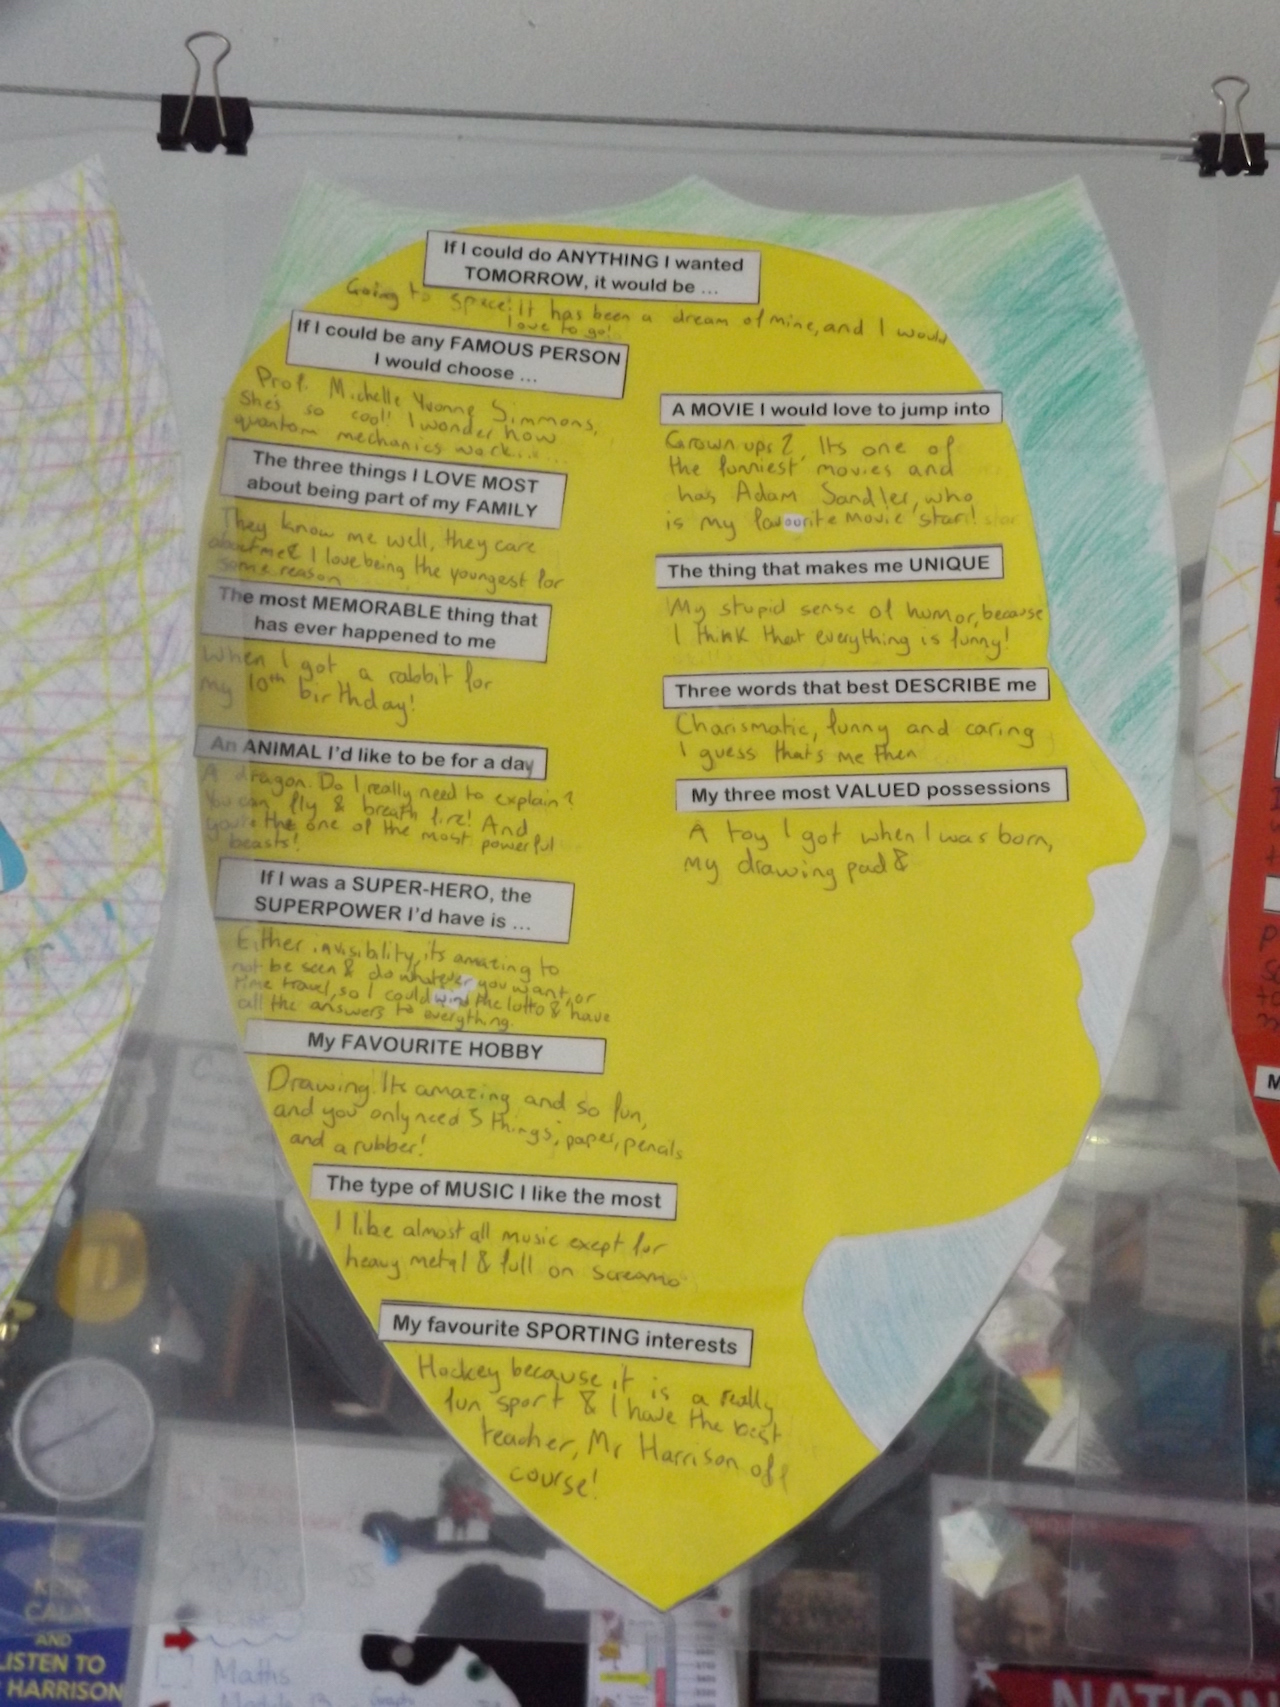 If I could do ANYTHING I wanted
TOMORROW, it would be ...
Going to space! It has been a dream of mine, and I would
love to go!
If I could be any FAMOUS PERSON
I would choose ...
Prof. Michelle Yvonne Simmons,
She's so cool! I wonder how
quantom mechanics work.....
The three things I LOVE MOST
about being part of my FAMILY
They know me well, they care
about me & I love being the youngest for
some reason
The most MEMORABLE thing that
has ever happened to me
When I got a rabbit for
my 10th birthday!
An ANIMAL I'd like to be for a day
A dragon. Do I really need to explain?
You can fly & breath fire! And
you're the one of the most powerful
beasts!
If I was a SUPER-HERO, the
SUPERPOWER I'd have is ...
Either invisibility, its amazing to
not be seen & do whatever you want, or
time travel, so I could win the lotto & have
all the answers to everything.
My FAVOURITE HOBBY
Drawing. Its amazing and so fun,
and you only need 3 things; paper, pencils
and a rubber!
The type of MUSIC I like the most
I like almost all music exept for
heavy metal & full on screamo
My favourite SPORTING interests
Hockey because it is a really
fun sport & I have the best
teacher, Mr Harrison off
course!
A MOVIE I would love to jump into
Grown ups 2. Its one of
the funniest movies and
has Adam Sandler, who
is my favourite movie star!
The thing that makes me UNIQUE
My stupid sense of humor, because
I think that everything is funny!
Three words that best DESCRIBE me
Charismatic, funny and caring
I guess that's me then
My three most VALUED possessions
A toy I got when I was born,
my drawing pad &
KEEP
CALM
AND
LISTEN TO
HARRISON
Maths
NATION